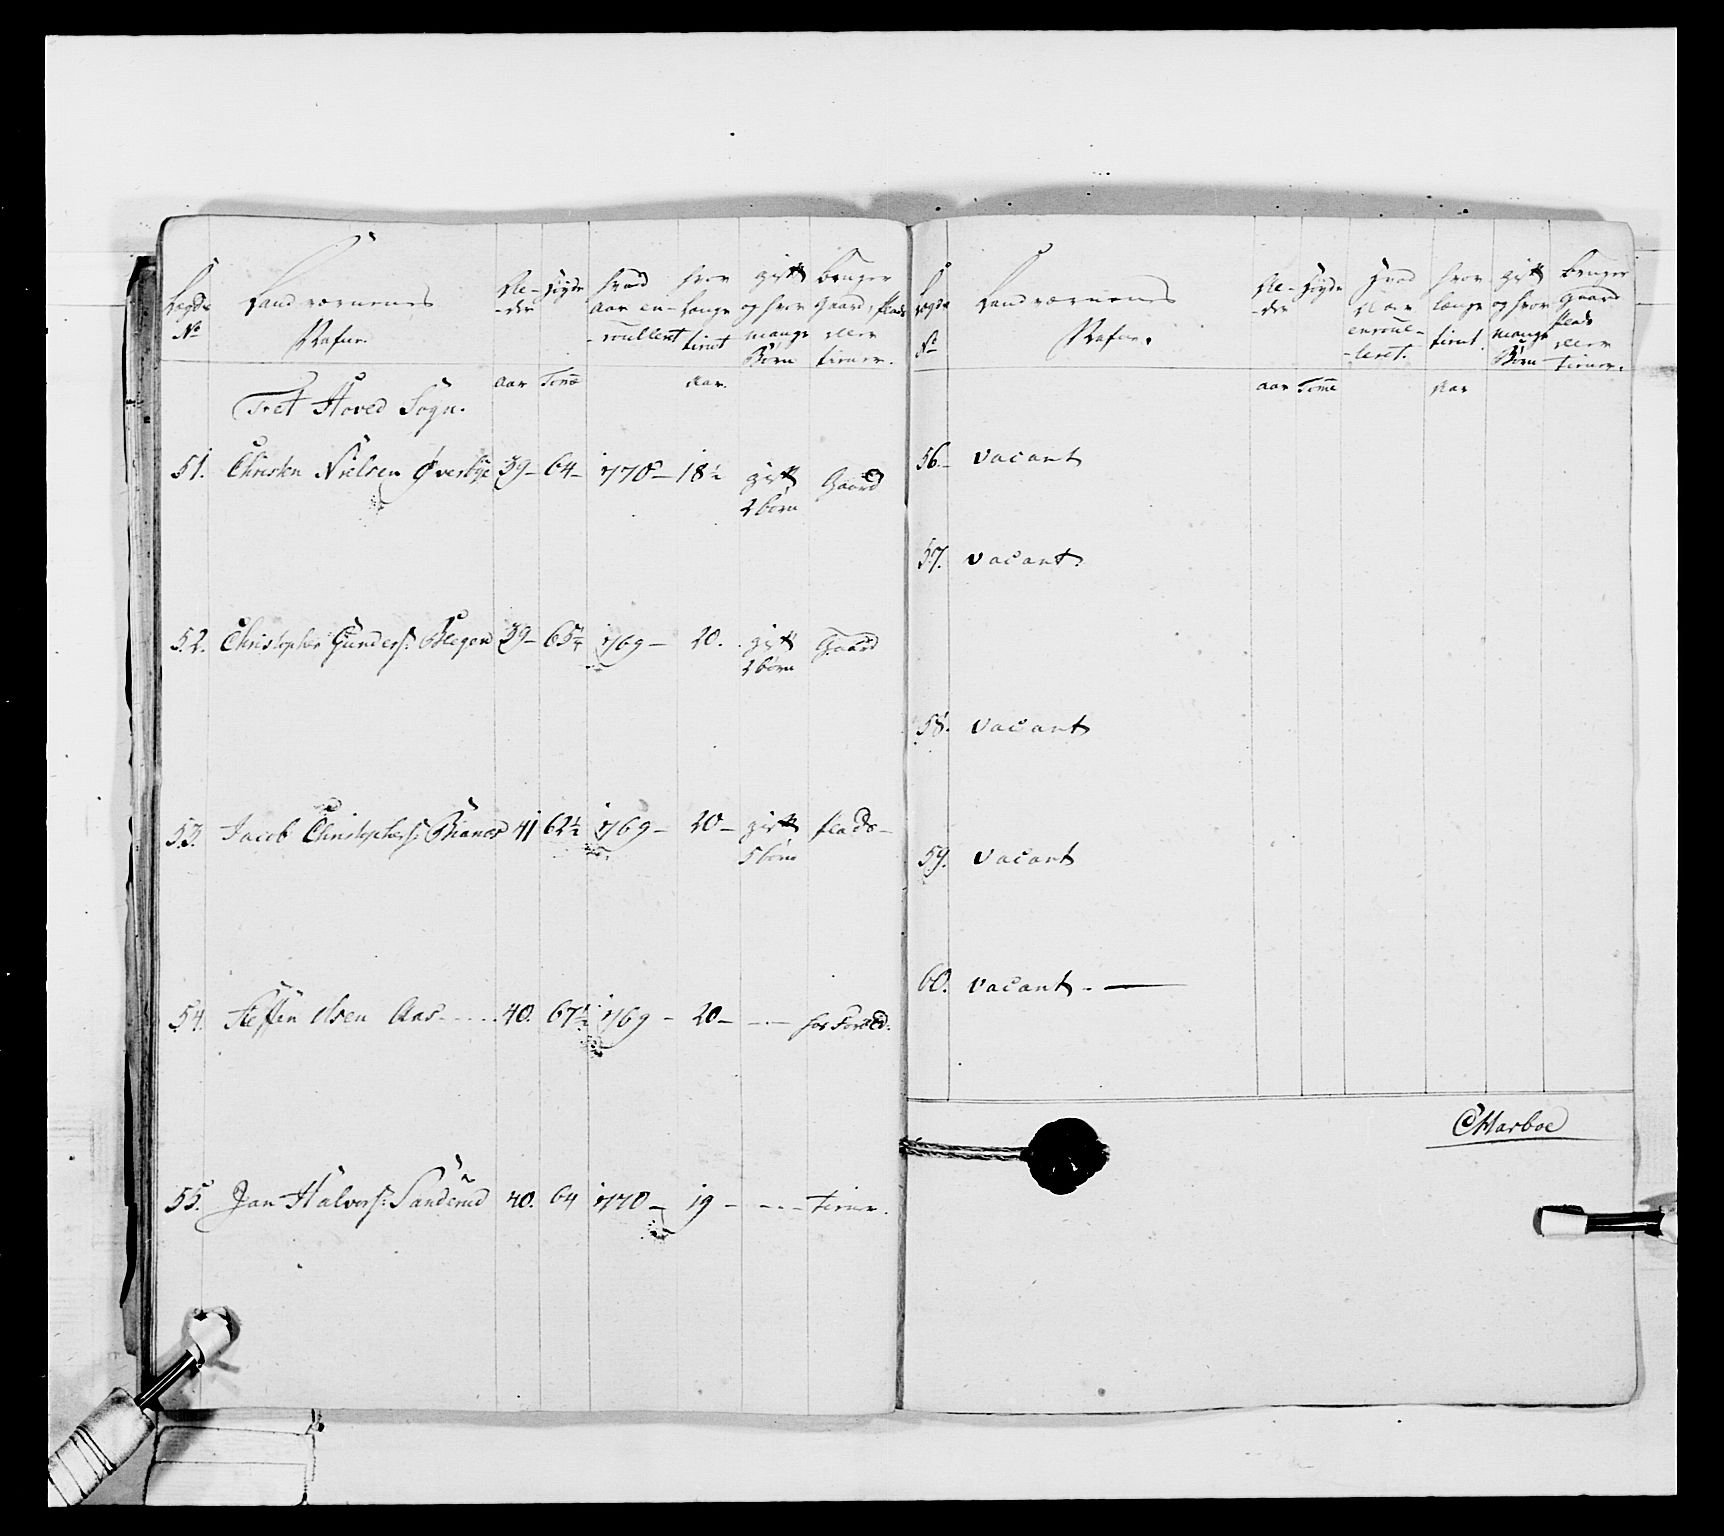 Lægds Landværnenes Al- Høyde Hvad hvor gift bruger
N° Nafne. -der Aar en- længe og hvor Gaard, Plads
-roulleret tient mange eller
Børn tiener.
Aar Tome Aar.
Tret Hoved Sogn.
51. Christen Nielsen Øverbye 39 – 64 – 1770 – 18½ gift Gaard
2 børn
52. Christopher Gunders: Blegen 39 – 65¼ 1769 – 20. gift Gaard
2 børn
53. Jacob Christophers: 41 62½ 1769 – 20 – gift Plads –
5 børn
54. Steffen Olsen Aas 40. 67½ 1769 – 20 – – . – hos Foræld.
55. Jan Halvors: Sanderud 40. 64 1770 – 19 – – . – tiener.
Lægds Landværnenes Al- Høyde Hvad hvor gift bruger
N° Nafne. -der Aar længe og hvor Gaard
enroul- tient. mange Plads
-leret. Børn eller
tiener.
Aar Tome Aar
56. – vacant
57. vacant.
58. vacant
59. vacant
60. vacant. –
CHarboe